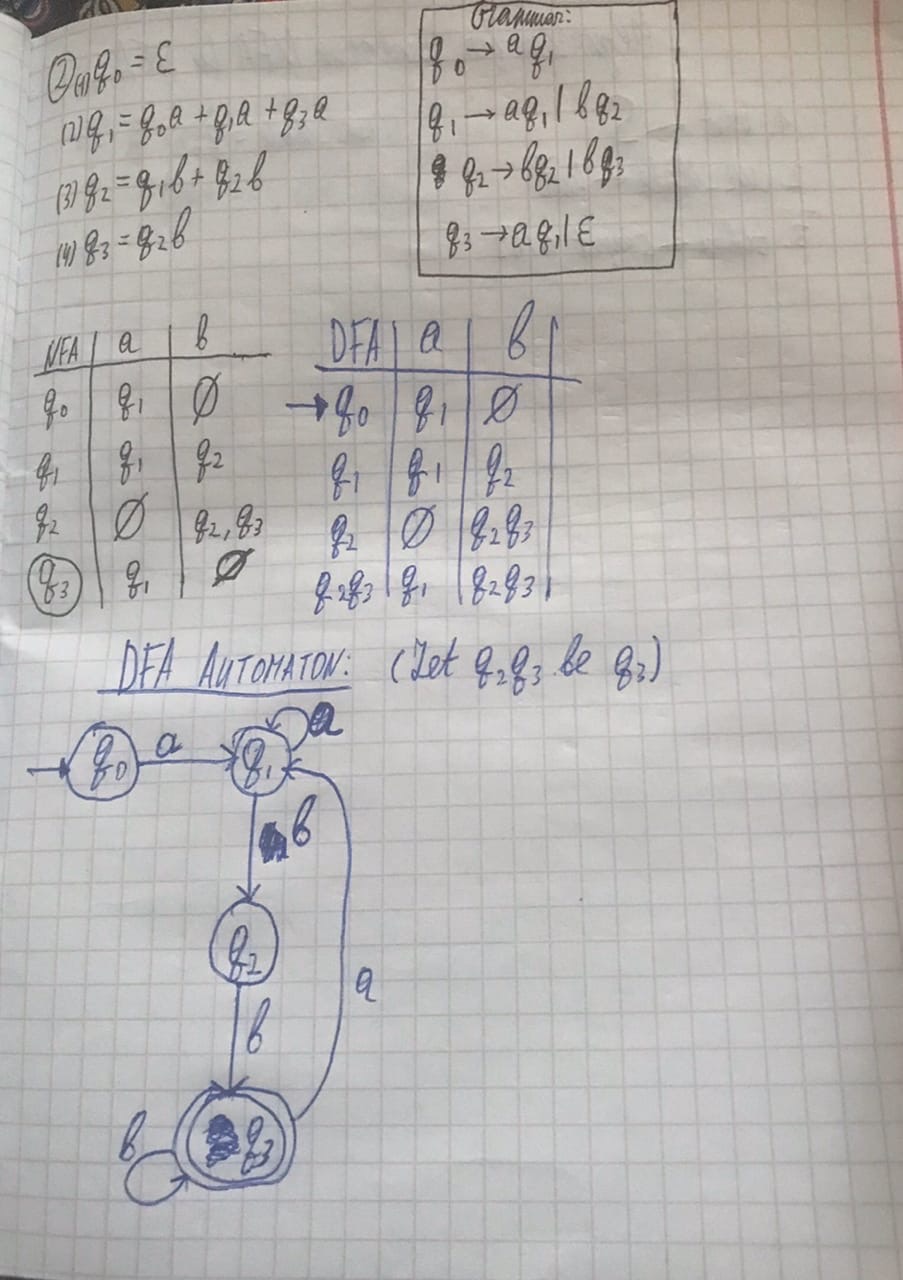 ② (1) q₀ = ε
(2) q₁ = q₀a + q₁a + q₃a
(3) q₂ = q₁b + q₂b
(4) q₃ = q₂b
Grammar:
q₀ → aq₁
q₁ → aq₁ | bq₂
q₂ → bq₂ | bq₃
q₃ → aq₁ | ε
NFA | a | b
q₀ | q₁ | ∅
q₁ | q₁ | q₂
q₂ | ∅ | q₂, q₃
q₃ | q₁ | ∅
DFA | a | b |
→ q₀ | q₁ | ∅
q₁ | q₁ | q₂
q₂ | ∅ | q₂q₃
q₂q₃ | q₁ | q₂q₃
DFA AUTOMATON: (Let q₂q₃ be q₃)
a
q₀ a q₁
b
q₂
a
b
b q₃